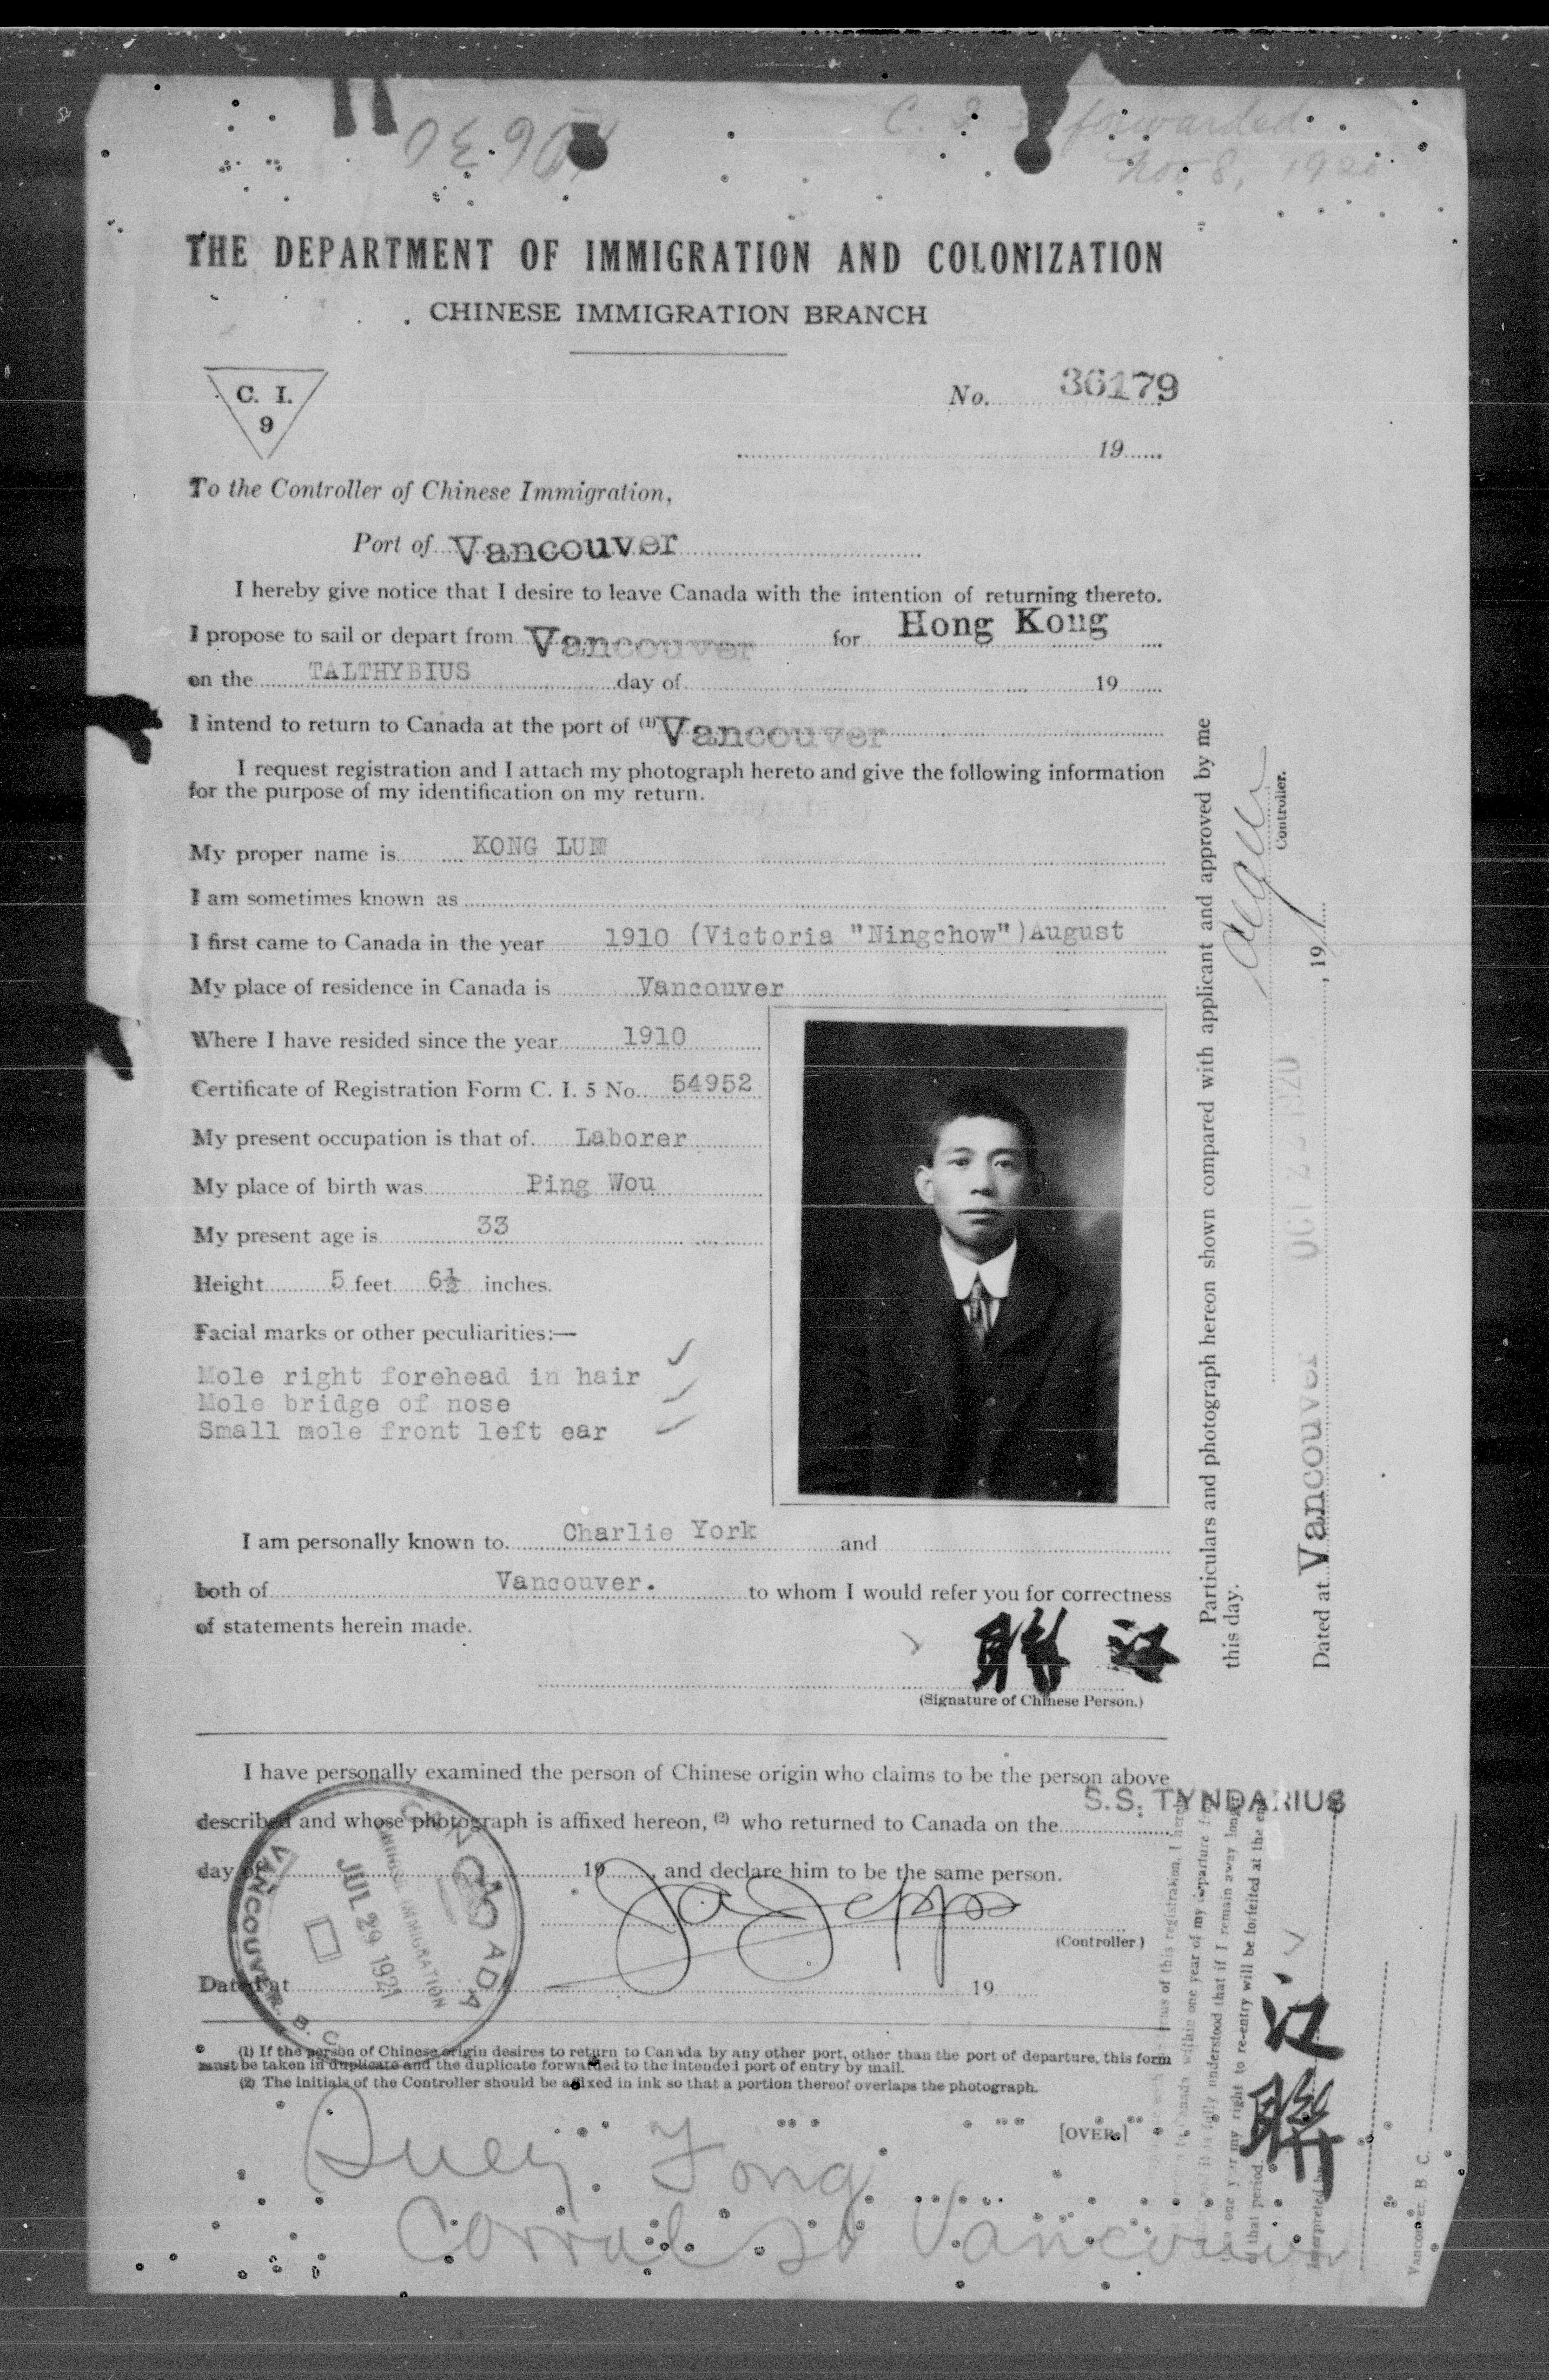 C. forwarded
Nov 8, 1920
THE DEPARTMENT OF IMMIGRATION AND COLONIZATION
CHINESE IMMIGRATION BRANCH
C. I.
9
No. 36179
19
To the Controller of Chinese Immigration,
Port of Vancouver
I hereby give notice that I desire to leave Canada with the intention of returning thereto.
I propose to sail or depart from Vancouver for Hong Kong
on the TALTHYBIUS day of 19
I intend to return to Canada at the port of (1) Vancouver
I request registration and I attach my photograph hereto and give the following information
for the purpose of my identification on my return.
My proper name is KONG LUM
I am sometimes known as
I first came to Canada in the year 1910 (Victoria "Ningchow")August
My place of residence in Canada is Vancouver
Where I have resided since the year 1910
Certificate of Registration Form C. I. 5 No. 54952
My present occupation is that of Laborer
My place of birth was Ping Wou
My present age is 33
Height 5 feet 6½ inches.
Facial marks or other peculiarities:—
Mole right forehead in hair
Mole bridge of nose
Small mole front left ear
I am personally known to Charlie York and
both of Vancouver. to whom I would refer you for correctness
of statements herein made.
聨 江
(Signature of Chinese Person.)
I have personally examined the person of Chinese origin who claims to be the person above
described and whose photograph is affixed hereon, (2) who returned to Canada on the S.S. TYNDARIUS
day of 19 and declare him to be the same person.
(Controller)
Dated at 19
CANADA
CHINESE IMMIGRATION
JUL 29 1921
VANCOUVER. B. C.
(1) If the person of Chinese origin desires to return to Canada by any other port, other than the port of departure, this form
must be taken in duplicate and the duplicate forwarded to the intended port of entry by mail.
(2) The initials of the Controller should be affixed in ink so that a portion thereof overlaps the photograph.
[OVER.]
Quey Fong
Corral St Vancouver
Particulars and photograph hereon shown compared with applicant and approved by me
this day.
Controller.
OCT 2 - 1920
Dated at Vancouver , 191
of this registration, I
Canada within one year of my departure
fully understood that if I remain away longer
one year my right to re-entry will be forfeited at the end
of that period.
江聨
Interpreted by
Vancouver, B. C.